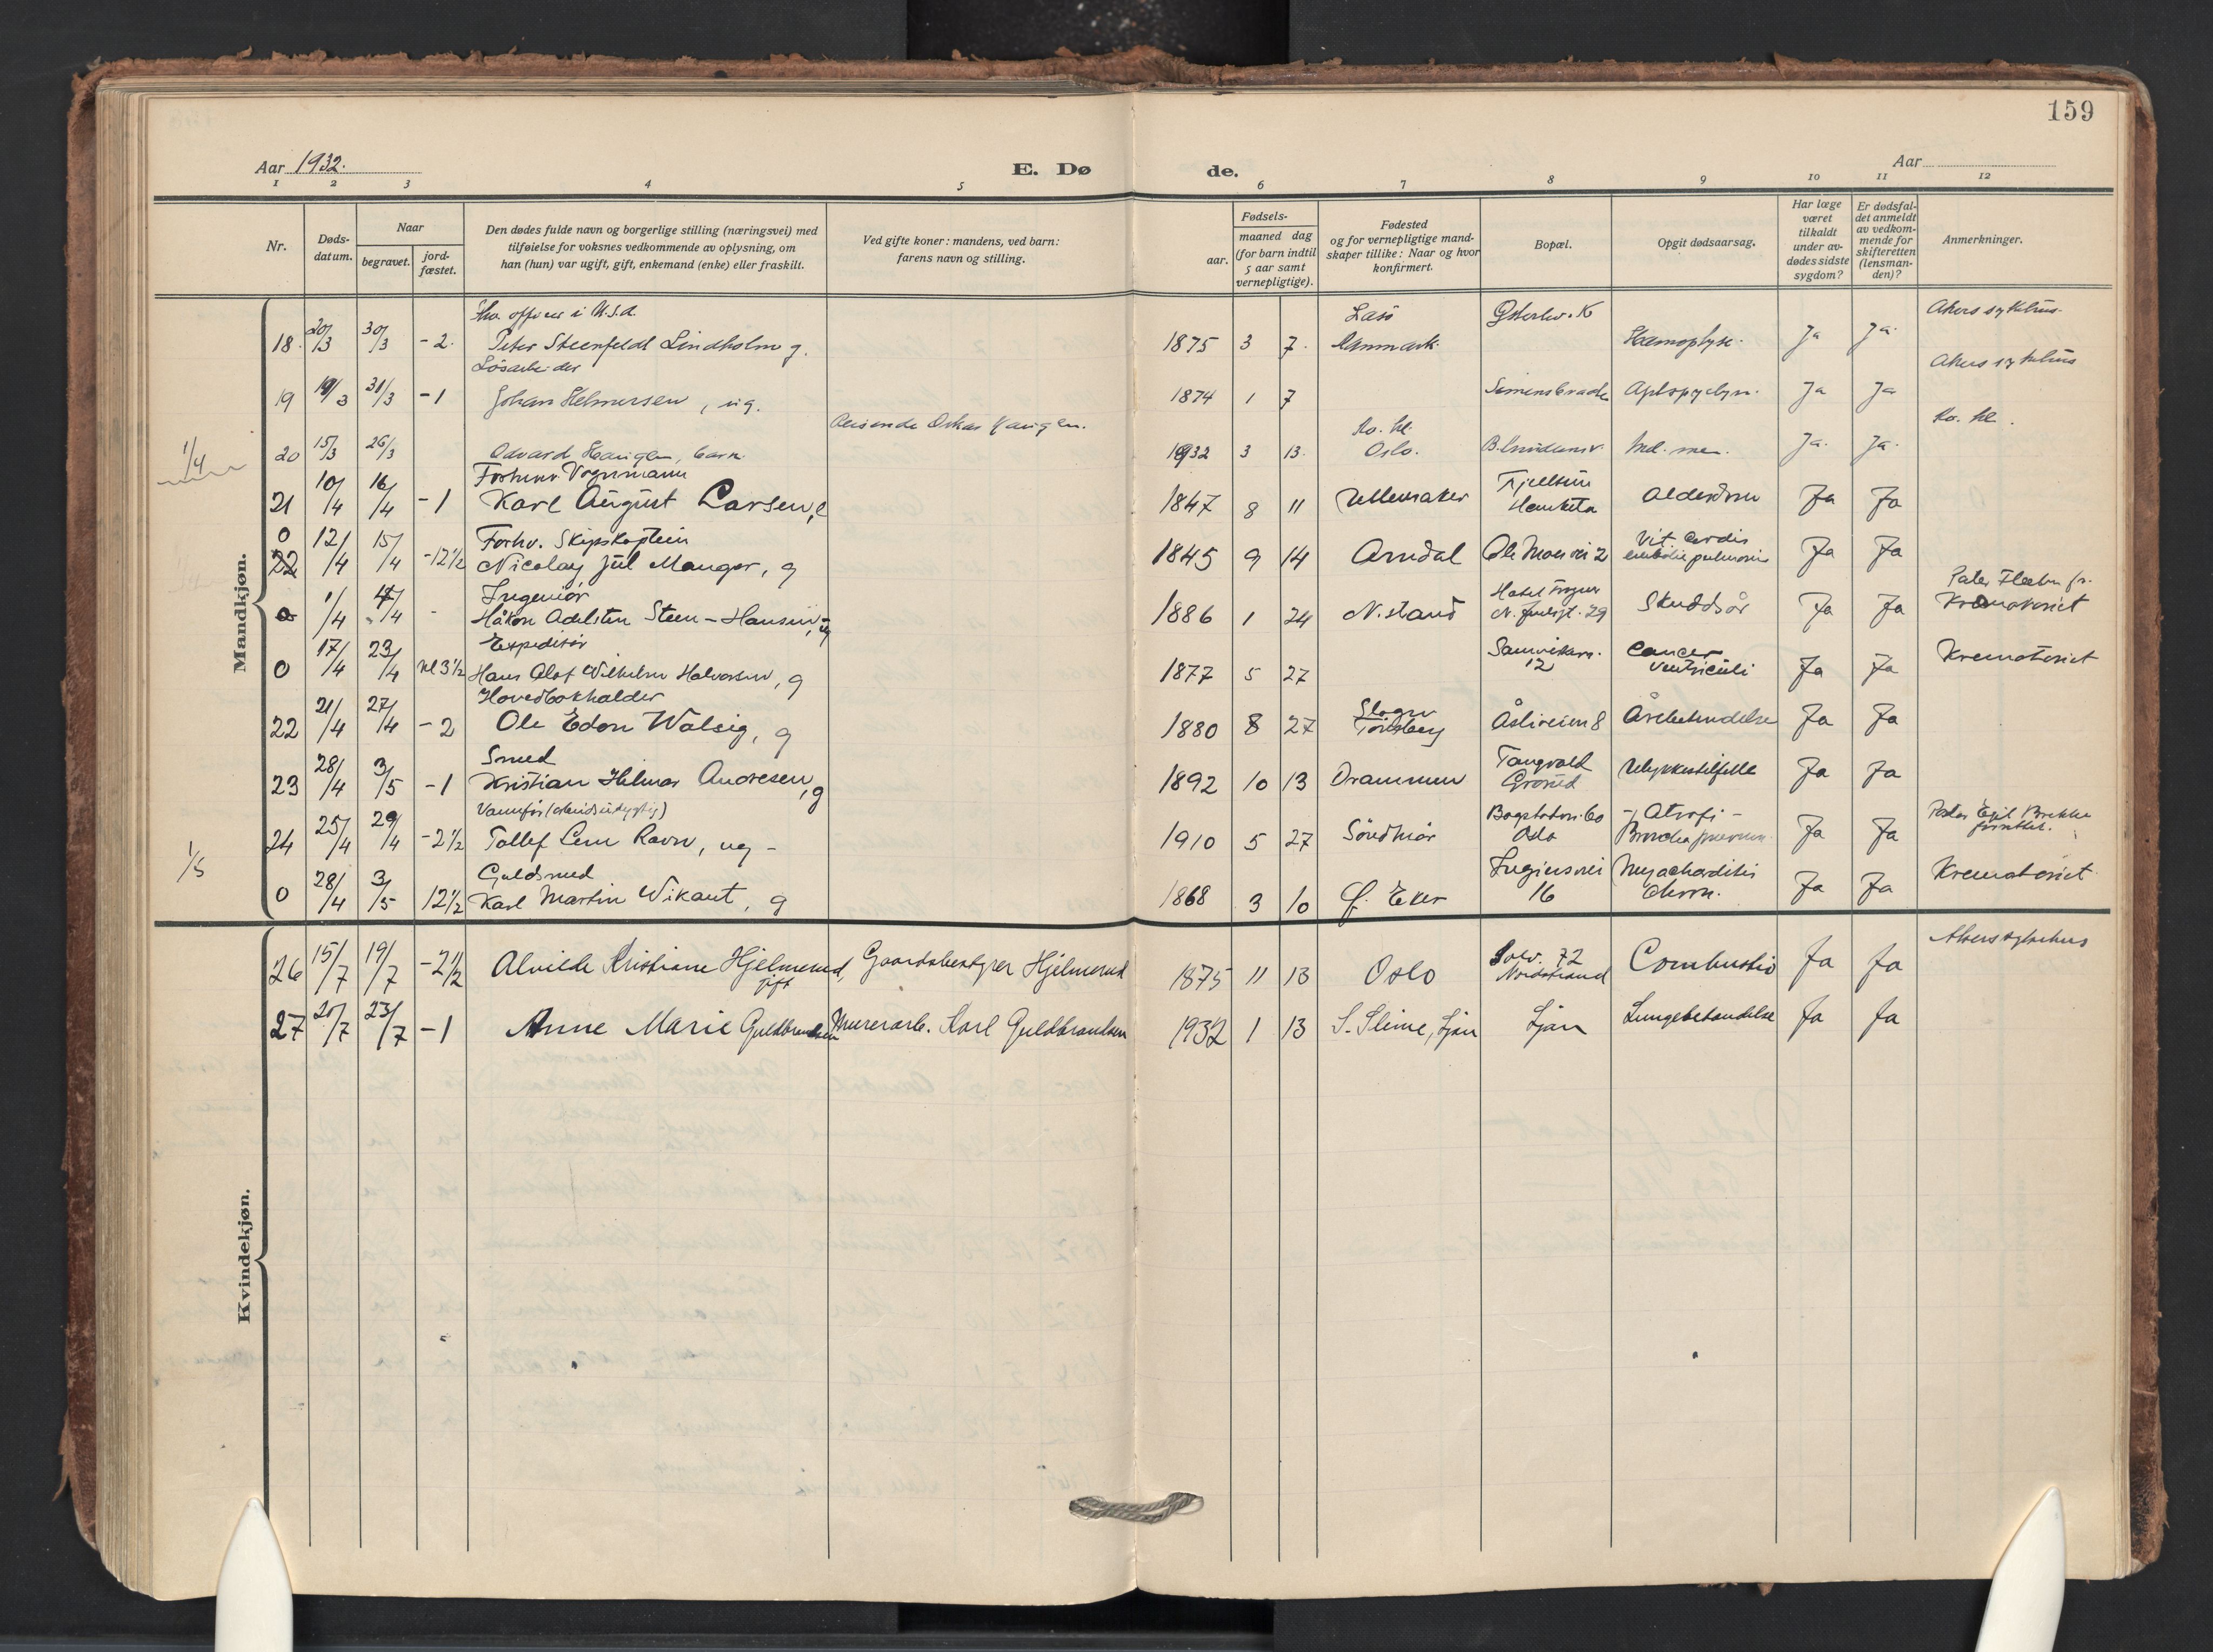 159
Aar 1932.
E. Dø de.
Aar
1 2 3 4 5 6 7 8 9 10 11 12
Nr.
Døds-
datum.
Naar
begravet.
jord-
fæstet.
Den dødes fulde navn og borgerlige stilling (næringsvei) med
tilføielse for voksnes vedkommende av oplysning, om
han (hun) var ugift, gift, enkemand (enke) eller fraskilt.
Ved gifte koner: mandens, ved barn:
farens navn og stilling.
Fødsels-
aar.
maaned dag
(for barn indtil
5 aar samt
vernepligtige).
Fødested
og for vernepligtige mand-
skaper tillike: Naar og hvor
konfirmert.
Bopæl.
Opgit dødsaarsag.
Har læge
været
tilkaldt
under av-
dødes sidste
sygdom?
Er dødsfal-
det anmeldt
av vedkom-
mende for
skifteretten
(lensman-
den)?
Anmerkninger.
Mandkjøn.
officer i U.S.A. Akers sykehus.
18. 20/3 30/3 -2. Peter Steenfeldt Lindholm g. 1875 3 7. Danmark. Hæmoptyse. Ja Ja.
Løsarbeider Akers sykehus
19 19/3 31/3 -1 Johan Helmersen, ug. 1874 1 7 Ja Ja
Reisende Oskar Haugen. Kv. kl. Kv. kl.
1/4
20 15/3 26/3 Edvard Haugen, barn. 1932 3 13. Oslo. Ja. Ja.
Forhenv. Vognmann
21 10/4 16/4 -1 Karl August Larsen, e 1847 8 11 Ullensaker Alderdom Ja Ja
Forhv. Skipskaptein Vit. Cordis
0 22 12/4 15/4 -12½ Nicolay Jul Manger, g 1845 9 14 Arndal Ole Moes vei 2 embolie pulmonis Ja Ja
Ingeniør
0 1/4 4/4 - Håkon Adelsten Steen-Hansen, g 1886 1 24 N.strand 29 Skuddsår Ja Ja Krematoriet
Expeditør
0 17/4 23/4 kl 3½ Hans Olaf Wilhelm Halvorsen, g 1877 5 27 12 Cancer ventriculi Ja Ja Krematoriet
Hovedbokholder
22 21/4 27/4 -2 Ole Edon Walsig, g 1880 8 27 Slagen Tønsberg Åsliveien 8 Ja Ja
Smed
23 28/4 3/5 -1 Kristian Hilmar Andresen, g 1892 10 13 Drammen Tangvald Grorud Ulykkestilfelle Ja Ja
Vannfør (arbeidsudygtig)
24 25/4 29/4 -2½ Tollef Lem Ravn, ug - 1910 5 27 Søndmør 60 Oslo Atrofi - Ja Ja
1/5
Guldsmed
0 28/4 3/5 12½ Karl Martin Wikant, g 1868 3 10 Ø. Eker 16 chron. Ja Ja Krematoriet
Kvindekjøn.
26 15/7 19/7 -2½ Alvilde Kristiane Hjelmerud, gift Gaardsbestyrer Hjelmerud 1875 11 13 Oslo Solv. 72 Nordstrand Combustio Ja Ja Akers sykehus
27 20/7 23/7 -1 Anne Marie Guldbrandsen Murerarb. Karl Guldbrandsen 1932 1 13 Ljan Ljan Lungebetendelse Ja Ja